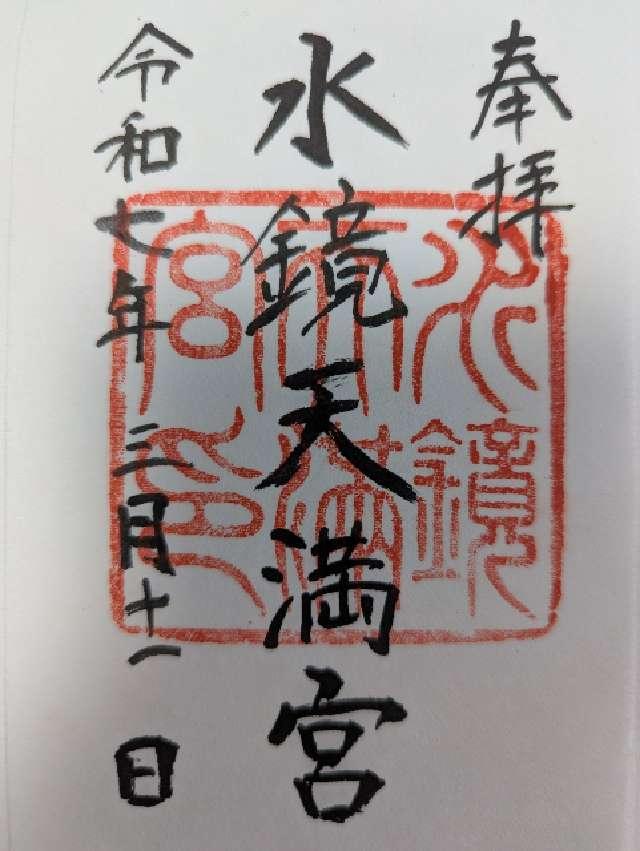 奉拝
水鏡天満宮
令和七年三月十一日
水鏡
天満
宮印